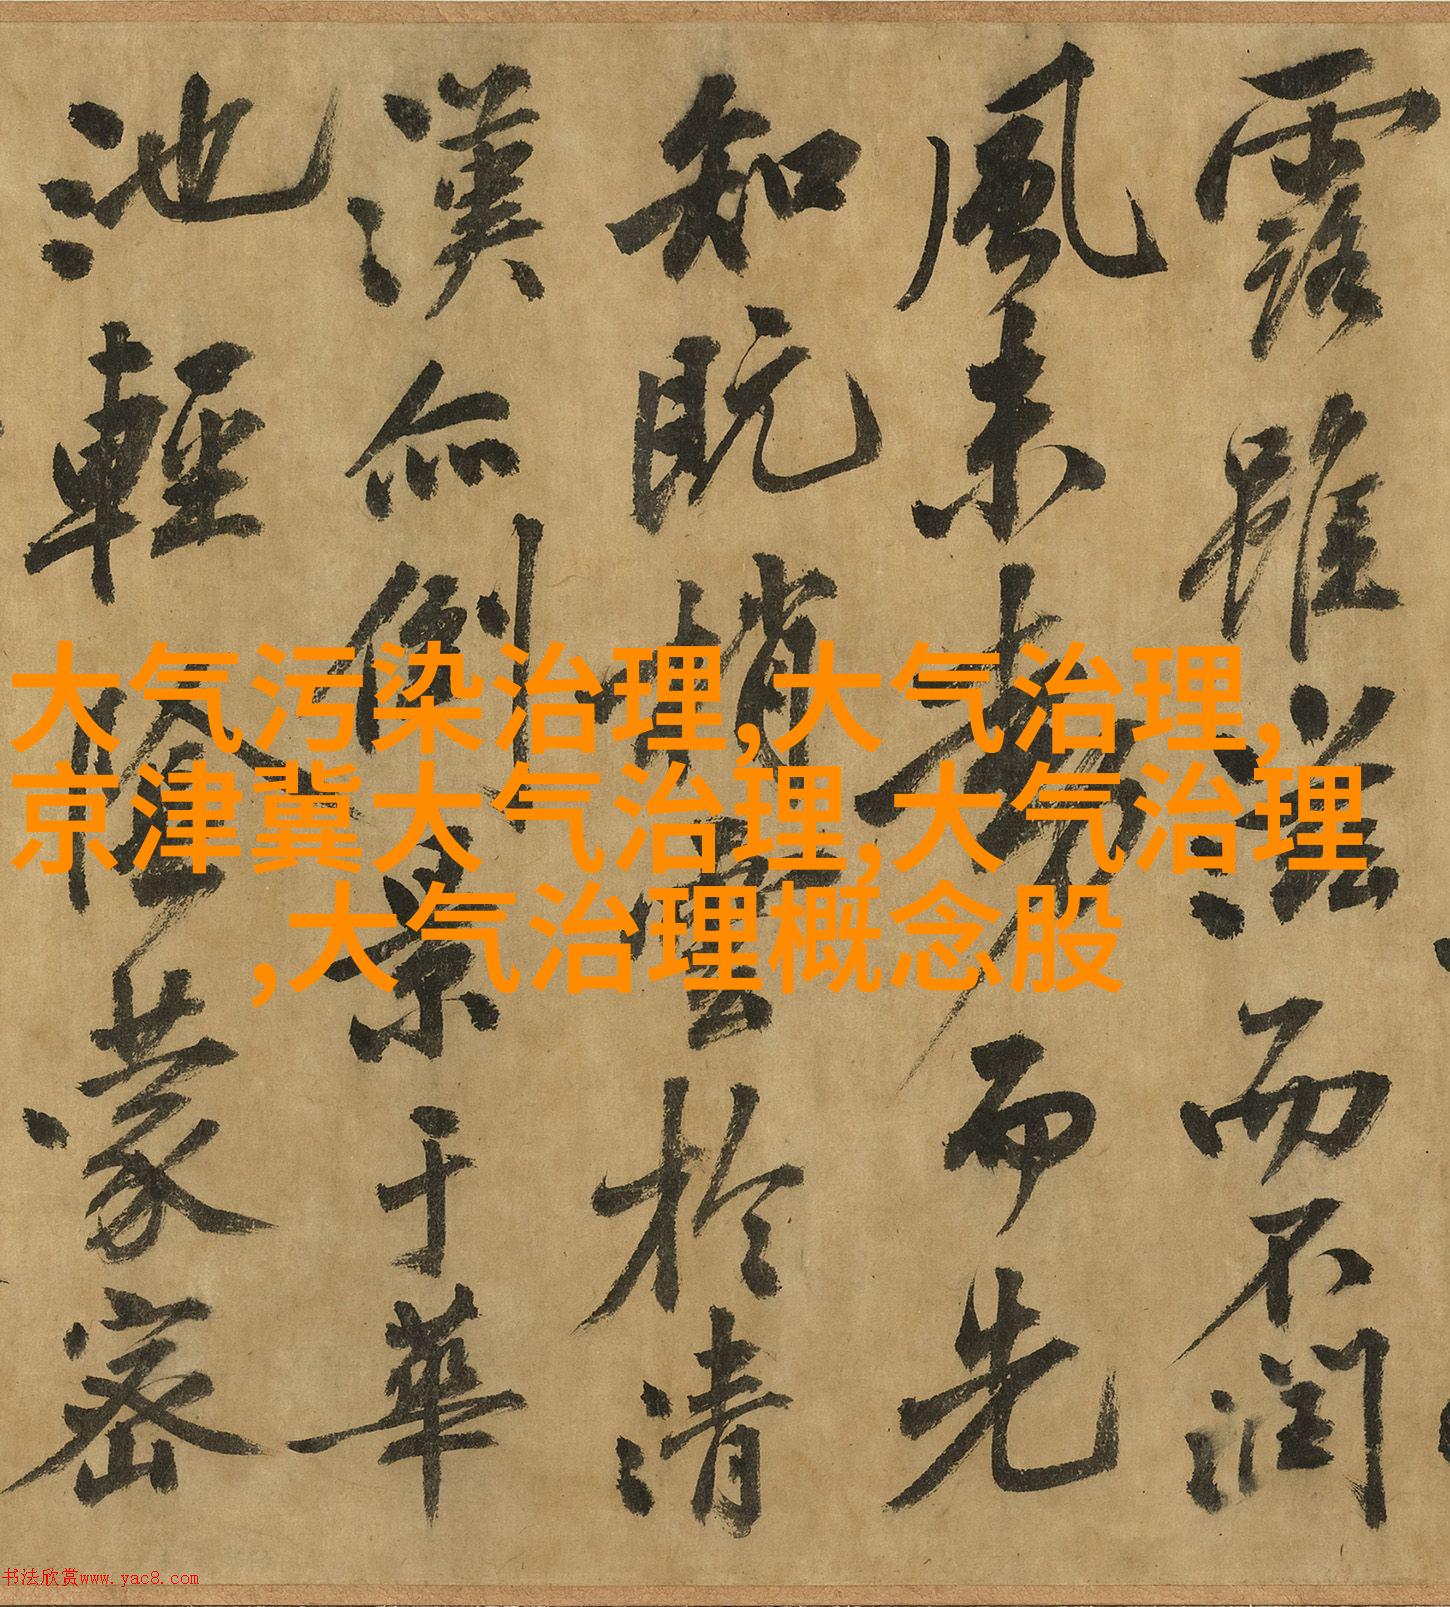 露雖滋而不潤
風未動而先
知既梢雲於清
漢亦倒景于華
池輕陰蒙密
大气污染治理,大气治理,
京津冀大气治理,大气治理
,大气治理概念股
书法欣赏www.yac8.com